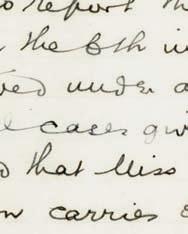 to report th
the 6th in
ved under a
l cases giv
d that Miss
on carries